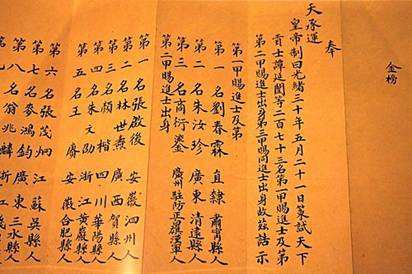 金榜
奉
天承運
皇帝制曰光緒三十年五月二十一日策試天下
貢士譚延闓等二百七十三名第一甲賜進士及第
第二甲賜進士出身第三甲賜同進士出身故茲誥示
第一甲賜進士及第
第一名劉春霖 直隸肅寧縣人
第二名朱汝珍 廣東清遠縣人
第三名商衍鎏 廣州駐防正漢軍人
第二甲賜進士出身
第一名張啟後 安徽泗州人
第二名林世燾 廣西賀縣人
第三名顏楷 四川華陽縣人
第四名朱文劭 浙江黃巖縣人
第五名王賡 安徽合肥縣人
第六名張茂炯 江蘇吳縣人
第七名麥鴻鈞 廣東三水縣人
第八名翁兆麟 浙
第九